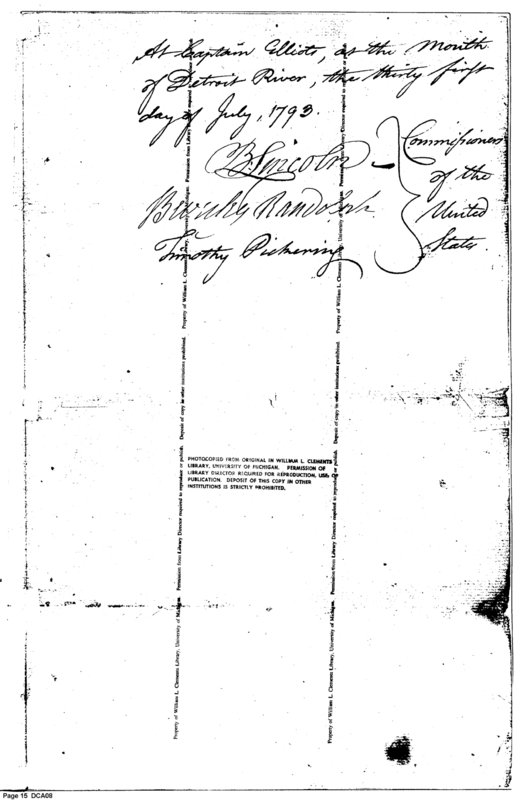 At Captain Elliots, at the Mouth
of Detroit River, the thirty first
day of July, 1793.
B. Lincoln
Beverley Randolph
Timothy Pickering
Commissioners
of the
United
States.
PHOTOCOPIED FROM ORIGINAL IN WILLIAM L. CLEMENTS
LIBRARY, UNIVERSITY OF MICHIGAN. PERMISSION OF
LIBRARY DIRECTOR REQUIRED FOR REPRODUCTION, USE,
PUBLICATION. DEPOSIT OF THIS COPY IN OTHER
INSTITUTIONS IS STRICTLY PROHIBITED.
Property of William L. Clements Library, University of Michigan. Permission from Library Director required to reproduce or publish. Deposit of copy in other institutions prohibited. Property of William L. Clements Library, University of Michigan. Permission from Library Director required to reproduce or
Property of William L. Clements Library, University of Michigan. Permission from Library Director required to reproduce or publish. Deposit of copy in other institutions prohibited. Property of William L. Clements Library, University of Michigan. Permission from Library Director required to reproduce or
Page 15 DCA08